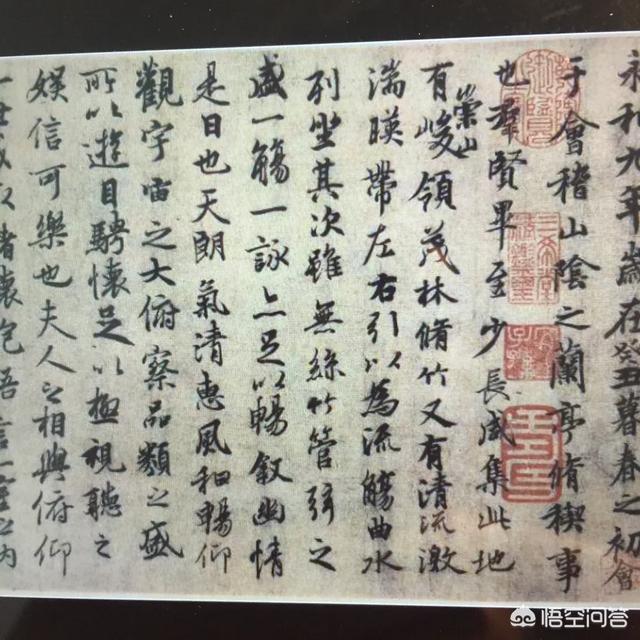 永和九年歲在癸丑暮春之初會
于會稽山陰之蘭亭脩禊事
也羣賢畢至少長咸集此地
有崇山峻領茂林脩竹又有清流激
湍暎帶左右引以為流觴曲水
列坐其次雖無絲竹管弦之
盛一觴一詠亦足以暢敘幽情
是日也天朗氣清惠風和暢仰
觀宇宙之大俯察品類之盛
所以遊目騁懷足以極視聽之
娛信可樂也夫人之相與俯仰
一世或取諸懷抱悟言一室之內
悟空问答